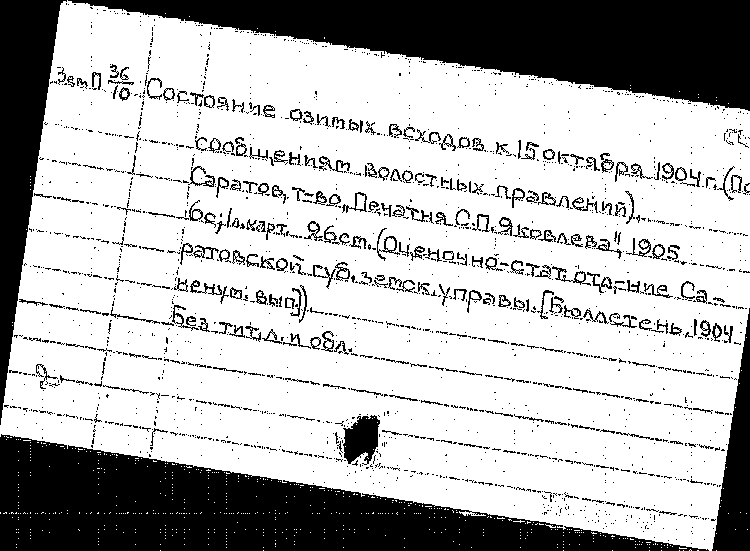 Зем.П. 36/10. Состояние озимых всходов к 15 октября 1904 г. (По
сообщениям волостных правлений).
Саратов, т-во „Печатня С.П. Яковлева", 1905.
6с; 1л. карт. 26cm. (Оценочно-стат. отд-ние Са-
ратовской губ. земск. управы. [Бюллетень. 1904
ненум. вып.]).
Без тит. л. и обл.